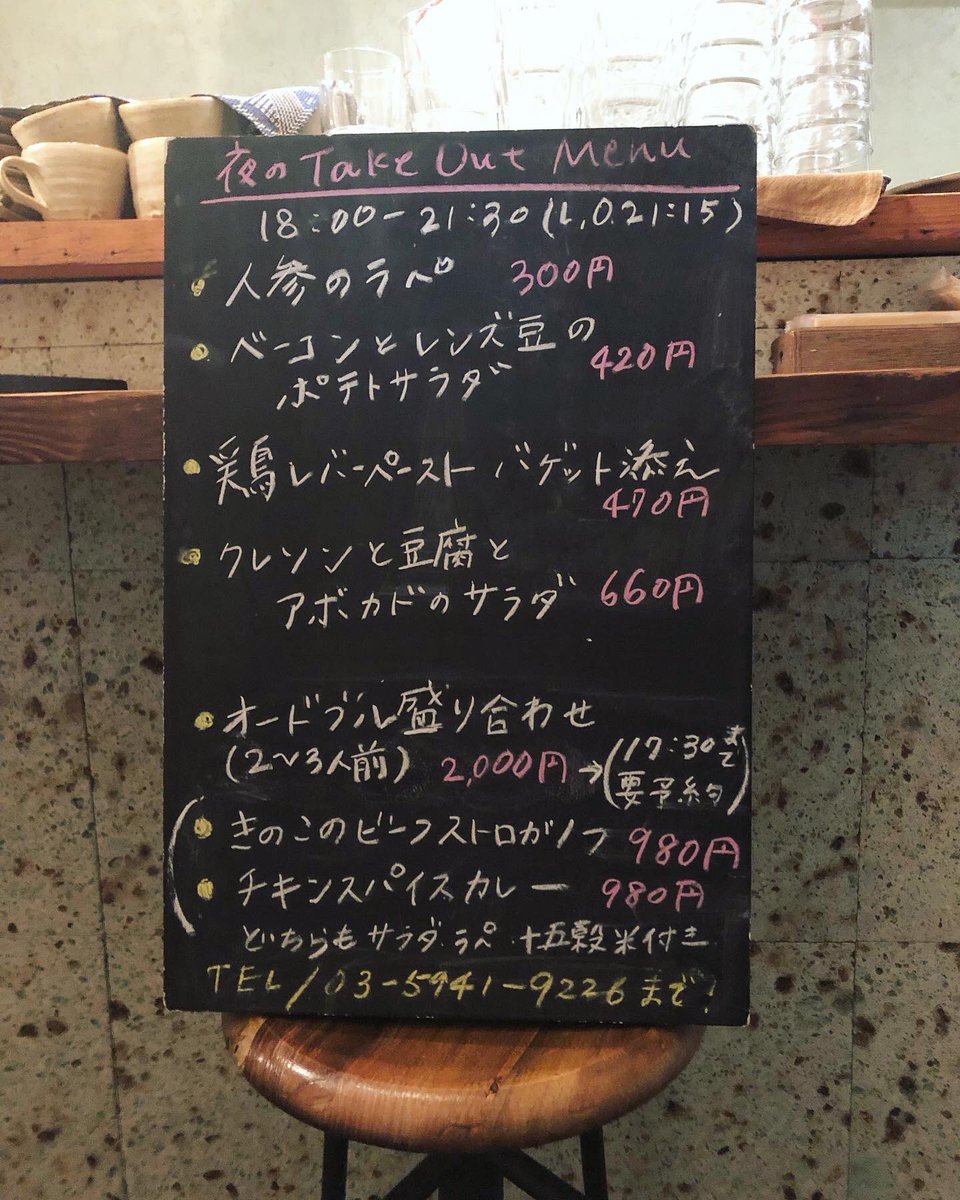 夜の Take Out Menu
18:00-21:30 (L,O.21:15)
人参のラペ 300円
ベーコンとレンズ豆の
ポテトサラダ 420円
鶏レバーペースト バゲット添え
470円
クレソンと豆腐と
アボカドのサラダ 660円
オードブル盛り合わせ
(2〜3人前) 2,000円→(17:30まで
要予約)
きのこのビーフストロガノフ 980円
チキンスパイスカレー 980円
どちらもサラダ、ラペ 十五穀米付き
TEL/03-5941-9226まで!